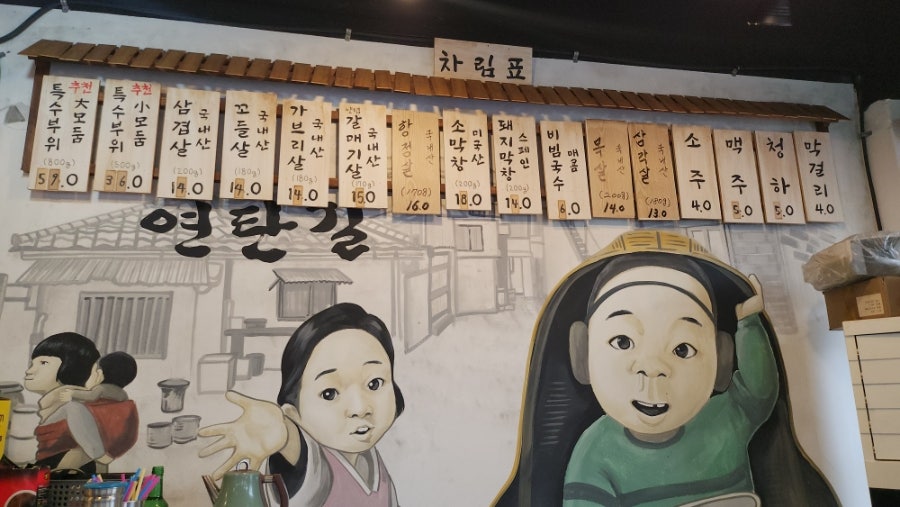 차림표
추천
특수부위
大모둠
(800g)
59.0
추천
특수부위
小모둠
(500g)
36.0
삼겹살
국내산
(200g)
14.0
꼬들살
국내산
(180g)
14.0
가브리살
국내산
(180g)
14.0
갈매기살
국내산
15.0
항정살
국내산
(170g)
16.0
소막창
미국산
(200g)
18.0
돼지막창
스페인
(200g)
14.0
비빔국수
매콤
6.0
목살
국내산
(200g)
14.0
삼각살
국내산
(180g)
13.0
소주
4.0
맥주
5.0
청하
5.0
막걸리
4.0
연탄길